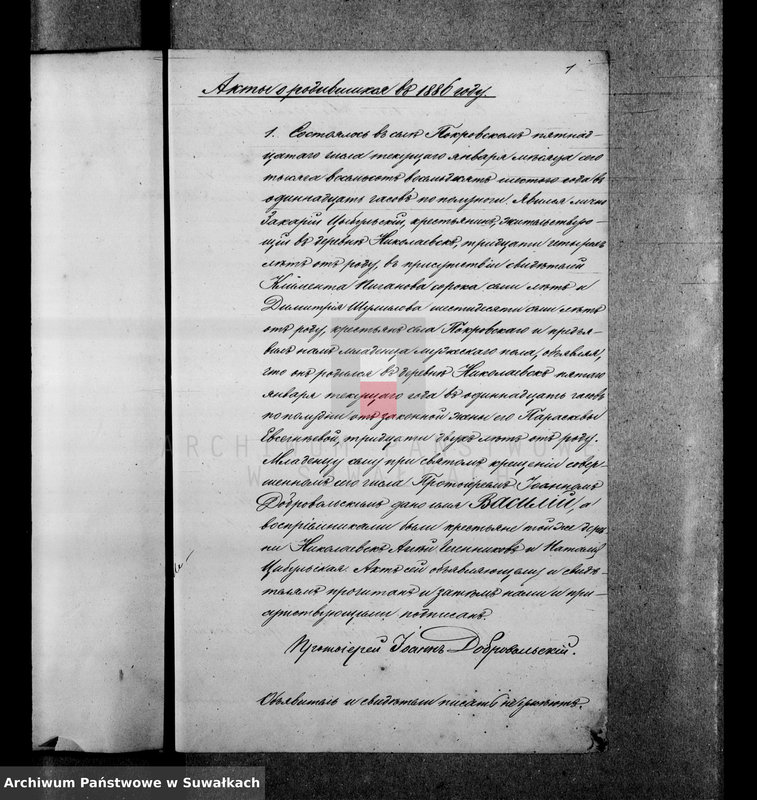 1
Акты о родившихся въ 1886 году.
1. Состоялось въ селѣ Покровскомъ пятнад-
цатаго числа текущаго января мѣсяца сего
тысяча восемьсотъ восемьдесятъ шестого года въ
одиннадцать часовъ по полуночи. Явился лично
Захарій Цыбульскій, крестьянинъ, жительствую-
щій въ деревнѣ Николаевскѣ, тридцати четырехъ
лѣтъ отъ роду, въ присутствіи свидѣтелей
Климента сорока семи лѣтъ и
Димитрія шестидесяти семи лѣтъ
отъ роду, крестьянъ села Покровскаго и предъя-
вилъ намъ младенца мужескаго пола, объявляя,
что онъ родился въ деревнѣ Николаевскѣ пятаго
января текущаго года въ одиннадцать часовъ
по полудни отъ законной жены его Параскевы
Евсеньевой, тридцати двухъ лѣтъ отъ роду.
Младенцу сему при святомъ крещеніи совер-
шенномъ сего числа Протоіереемъ Іоанномъ
Добровольскимъ дано имя Василій, а
воспріемниками были крестьяне той же дерев
ни Николаевскъ и Наталія
Цыбульская. Актъ сей объявляющему и свидѣ-
телямъ прочитанъ и затѣмъ нами и при-
сутствующими подписанъ.
Протоіерей Іоаннъ Добровольскій.
Объявитель и свидѣтели писать не умѣютъ.
ARCHIWUM PAŃSTWOWE
W SUWAŁKACH
Archiwum Państwowe w Suwałkach